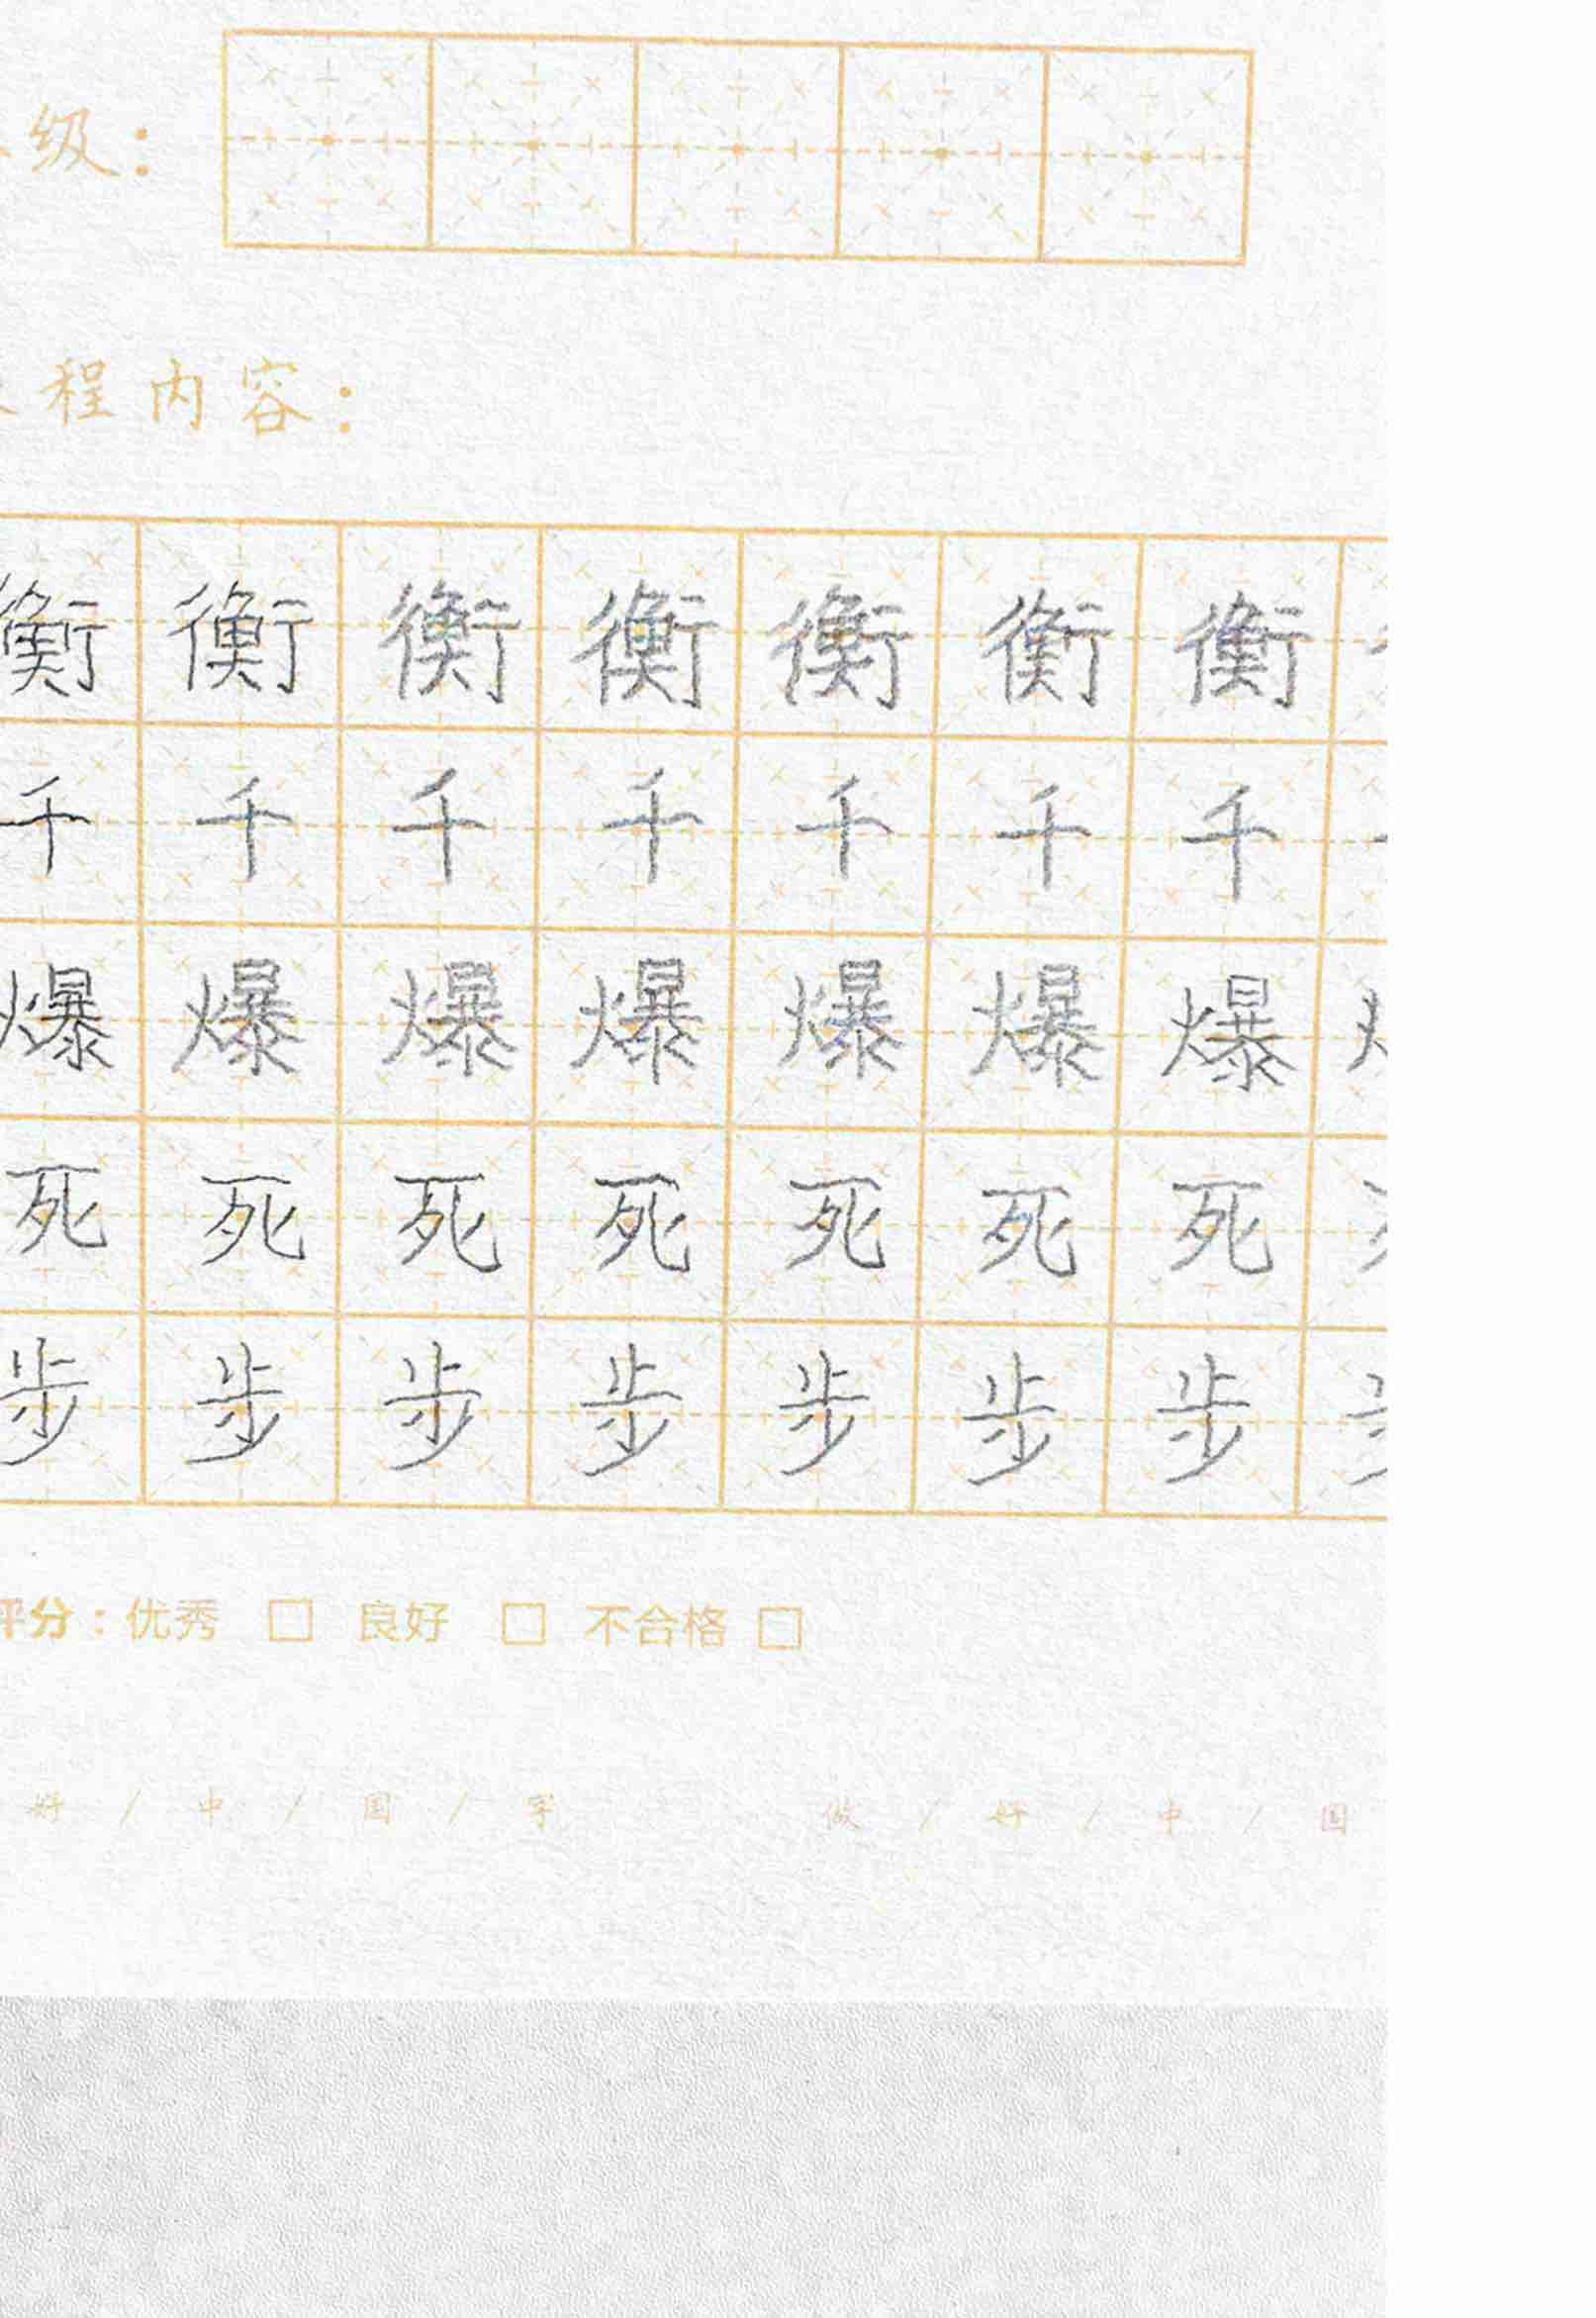 级：
程内容：
衡衡衡衡衡衡衡
千千千千千千千
爆爆爆爆爆爆爆
死死死死死死死
步步步步步步步
评分：优秀 □ 良好 □ 不合格 □
好 / 中 / 国 / 字 做 / 好 / 中 / 国